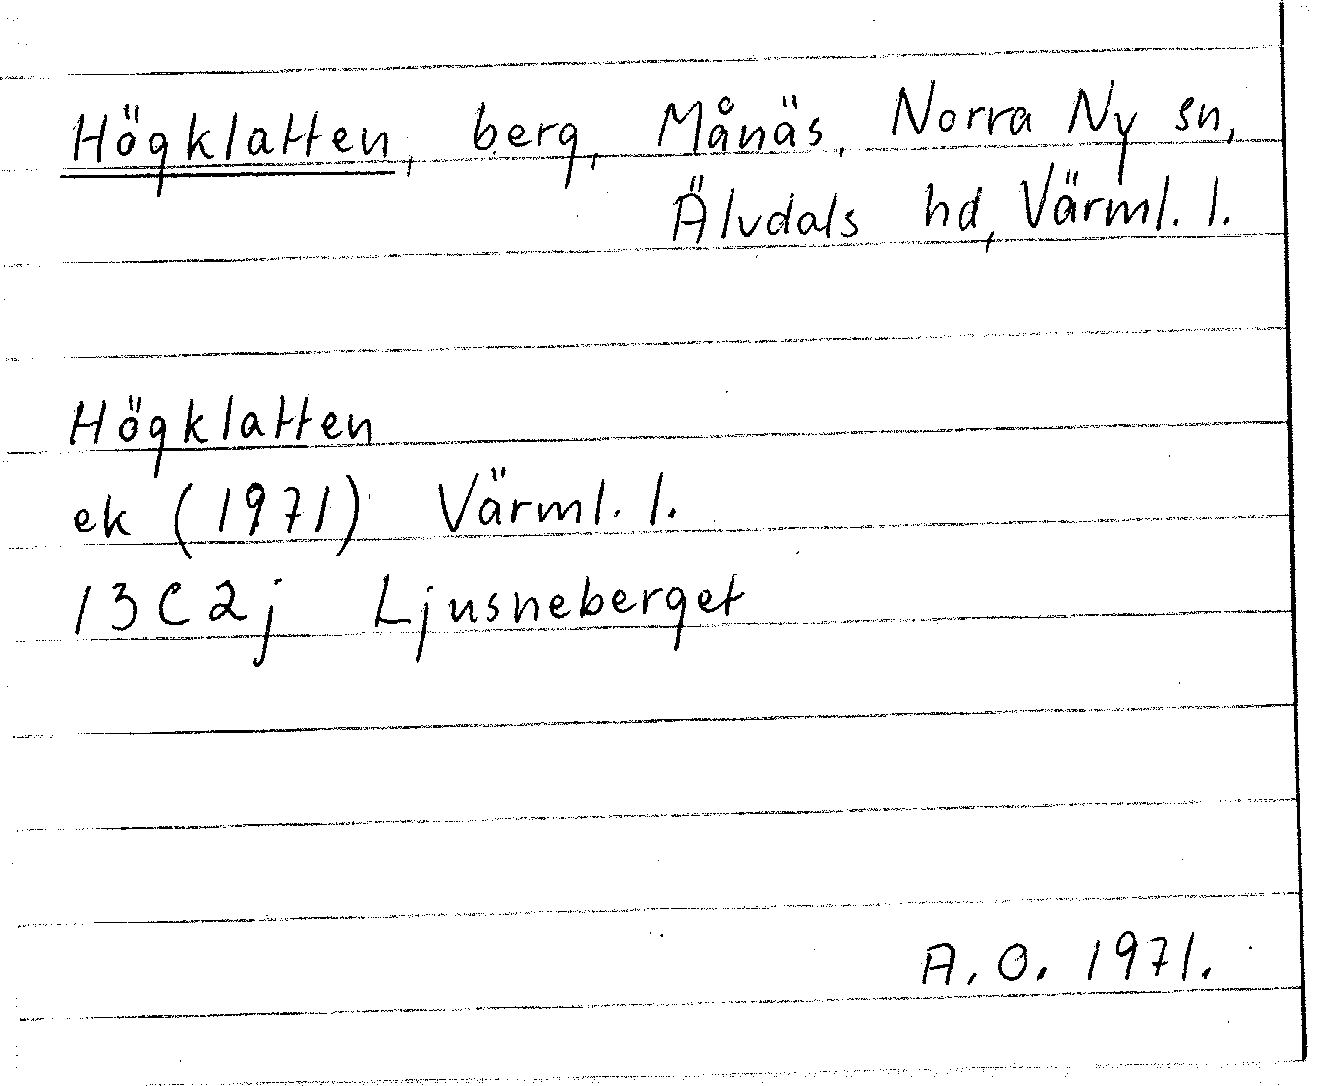 Högklatten, berg, Månäs, Norra Ny sn,
Älvdals hd, Värml. l.
Högklatten
ek (1971) Värml. l.
13C2j Ljusneberget
A.O. 1971.